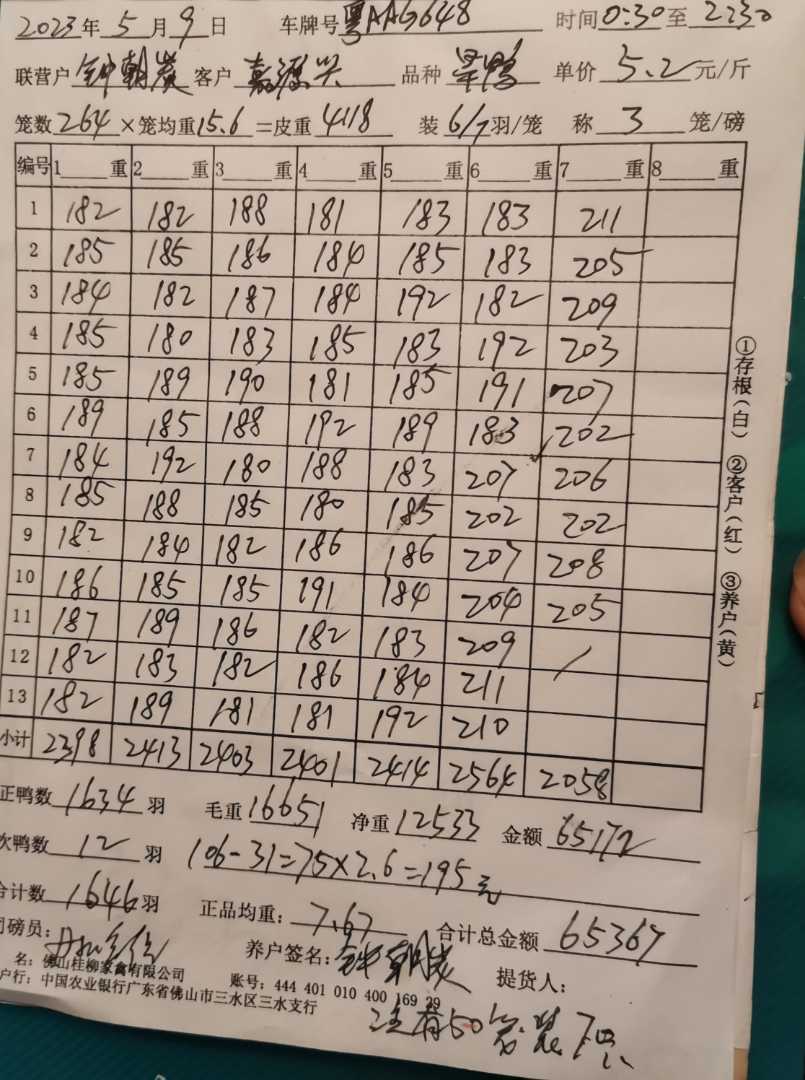 2023年5月9日 车牌号粤AAG648 时间0:30至2230
联营户钟朝炭 客户嘉源兴 品种 单价5.2元/斤
笼数264×笼均重15.6=皮重4118 装6/7羽/笼 称3笼/磅
编号 1重 2重 3重 4重 5重 6重 7重 8重
1 182 182 188 181 183 183 211
2 185 185 186 184 185 183 205
3 184 182 187 184 192 182 209
4 185 180 183 185 183 192 203
5 185 189 190 181 185 191 207
6 189 185 188 192 189 183 202
7 184 192 180 188 183 207 206
8 185 188 185 180 185 202 202
9 182 184 182 186 186 207 208
10 186 185 185 191 184 204 205
11 187 189 186 182 183 209 /
12 182 183 182 186 184 211
13 182 189 181 181 192 210
小计 2398 2413 2403 2401 2414 2564 2058
正鸭数1634羽 毛重16651 净重12533 金额65172
次鸭数12羽 106-31=75×2.6=195元
合计数1646羽 正品均重:7.67 合计总金额65367
司磅员: 养户签名:钟朝炭 提货人:
名:佛山桂柳家禽有限公司 账号:444 401 010 400 169 29
户行:中国农业银行广东省佛山市三水区三水支行
注有50
①存根(白) ②客户(红) ③养户(黄)